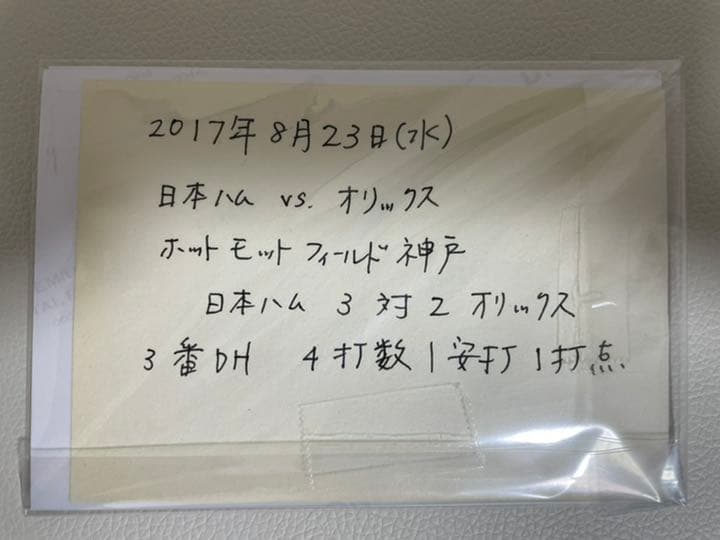 2017年8月23日(水)
日本ハム vs. オリックス
ホットモットフィールド神戸
日本ハム 3 対 2 オリックス
3番DH 4打数1安打1打点